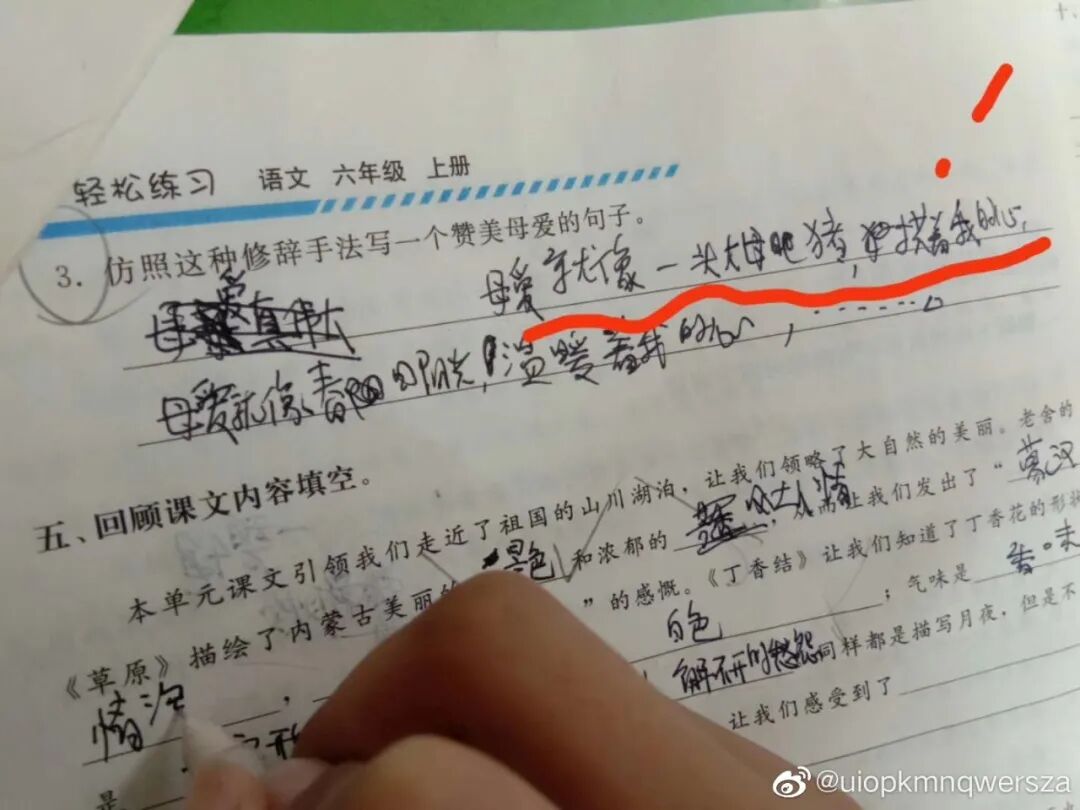 十、
轻松练习 语文 六年级 上册
3. 仿照这种修辞手法写一个赞美母爱的句子。
母爱就像一头大母猪,拱着我的心,
母爱真伟大
母爱就像春日阳光,温暖着我的心,……。
五、回顾课文内容填空。
本单元课文引领我们走近了祖国的山川湖泊,让我们领略了大自然的美丽。老舍的
《草原》描绘了内蒙古美丽的 景色 和浓郁的 ,从而让我们发出了“蒙汉
情深 ”的感慨。《丁香结》让我们知道了丁香花的形状
是 白色 ;气味是 香味
解不开的愁怨 同样都是描写月夜,但是不
让我们感受到了
@uiopkmnqwersza